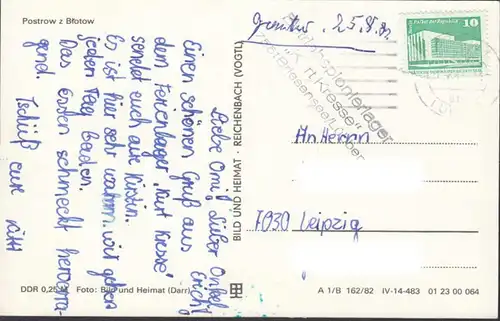 Postrow z Błotow
Liebe Omi, Lieber Onkel
Einen schönen Gruß aus
dem Ferienlager "Kurt Kresse"
sendet euch eure Kirstin.
Es ist hier sehr warm. Wir gehen
jeden Tag baden.
Das Essen schmeckt hervorra-
gend. Tschüß eure
BILD UND HEIMAT · REICHENBACH (VOGTL)
10
An Herrn
7030 Leipzig
DDR 0,25 M Foto: Bild und Heimat (Darr)
A 1/B 162/82 IV-14-483 01 23 00 064